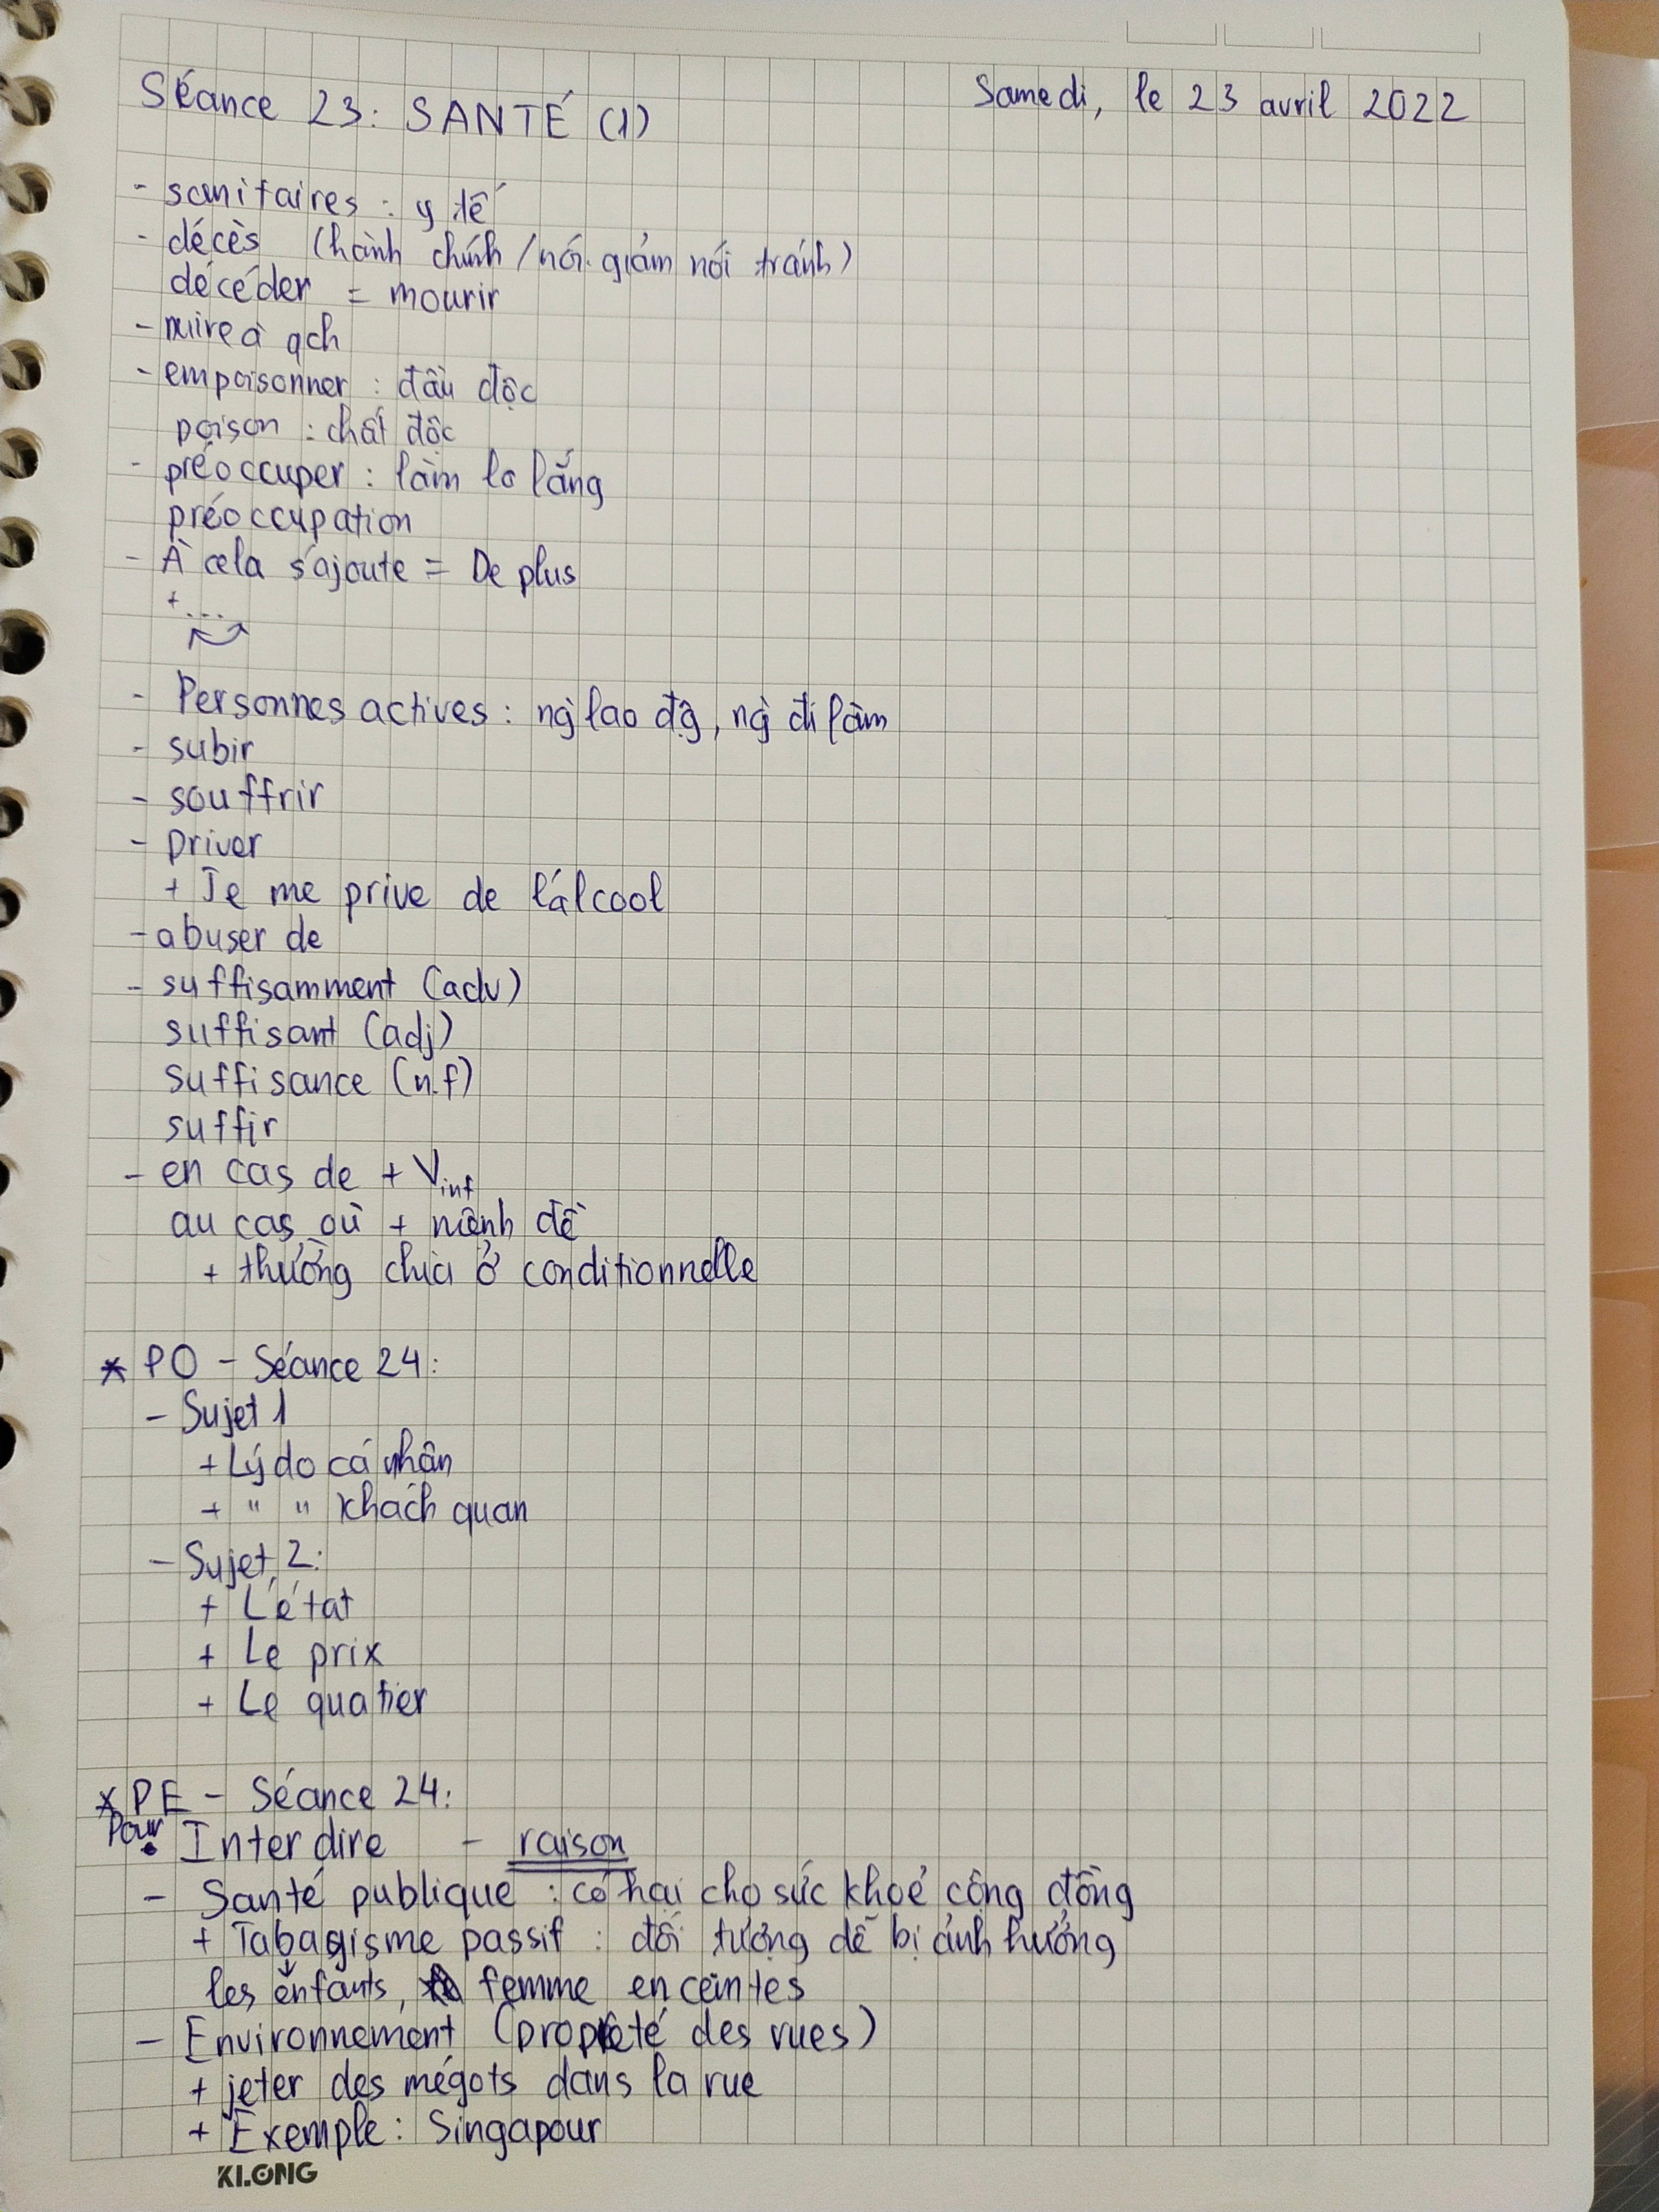 Séance 23: SANTÉ (1)
Samedi, le 23 avril 2022
- sanitaires : y tế
- décès (hành chính / nói giảm nói tránh)
décéder = mourir
- nuire à qch
- empoisonner : đầu độc
poison : chất độc
- préoccuper : làm lo lắng
préoccupation
- À cela s'ajoute = De plus
+ ...
- Personnes actives : ng` lao đg, ng` đi làm
- subir
- souffrir
- priver
+ Je me prive de l'alcool
- abuser de
- suffisamment (adv)
suffisant (adj)
suffisance (n.f)
suffir
- en cas de + Vinf
au cas où + mệnh đề
+ thường chia ở conditionnelle
* PO - Séance 24:
- Sujet 1
+ Lý do cá nhân
+ " " khách quan
- Sujet 2:
+ L'état
+ Le prix
+ Le quatier
* PE - Séance 24:
Pour Interdire - raison
- Santé publique : có hại cho sức khoẻ cộng đồng
+ Tabagisme passif : đối tượng dễ bị ảnh hưởng
les enfants, femme enceintes
- Environnement (propreté des rues)
+ jeter des mégots dans la rue
+ Exemple: Singapour
KLONG